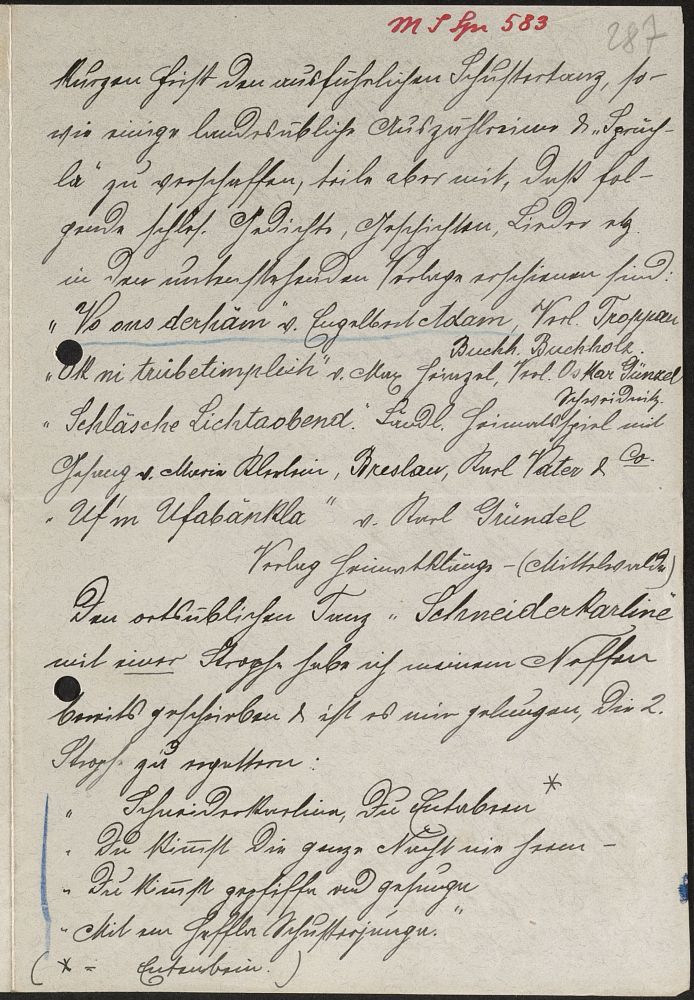 M S Spr 583
287
kurzen Frist den ausführlichen Schustertanz, so-
wie einige landesübliche Auszählreime & „Sprüch-
la" zu verschaffen, teile aber mit, daß fol-
gende schles. Gedichte, Geschichten, Lieder etz.
in den untenstehenden Verlage erschienen sind:
„Vo ons derhäm" v. Engelbert Adam, Verl. Troppau
Buchh. Buchholz
„Ok ni trübetimplich" v. Max Heinzel, Verl. Oskar Günzel
Schweidnitz.
„Schläsche Lichtaobend." Ländl. Heimatspiel mit
Gesang v. Marie Klerlein, Breslau, Karl Vater & Co.
„Uf'm Ufabänkla" v. Karl Gründel
Verlag Heimatklänge - (Mittelwalde)
Den ortsüblichen Tanz „Schneiderkarline
mit einer Strophe habe ich meinem Neffen
bereits geschrieben & ist es mir gelungen, die 2.
Stroph. zu ergattern:
„ Schneiderkarlina, Du Entabeen *
„ Du kimmst die ganze Nacht nie heem -
„ Du kimmst gepfiffa und gesunga
„ Mit em Haffla Schusterjunga."
( * = Entenbein. )